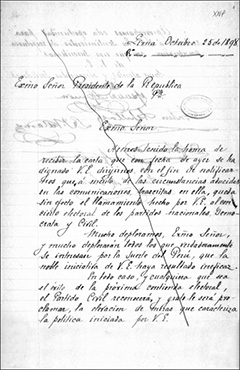 Lima Octubre 25 de 1898.
Exmo Señor Presidente de la República
Exmo Señor
Hemos tenido la honra de
recibir la carta que con fecha de ayer se ha
dignado V.E. dirigirnos, con el fin de notificar
nos que, á mérito de las circunstancias aducidas
en las comunicaciones trascritas en ella, queda
sin efecto el llamamiento hecho por V.E. al
electoral de los partidos nacionales, Demó
crata y Civil.
Mucho deploramos, Exmo Señor,
y mucho deplorarán todos los que
se interesan por la suerte del Perú, que la
noble iniciativa de V.E. haya resultado ineficaz.
En todo caso, y cualquiera que sea
el éxito de la próxima contienda electoral,
el Partido Civil reconocerá, y grato le será pro
clamar, la elevacion de miras que caracteriza
la política iniciada por V.E.